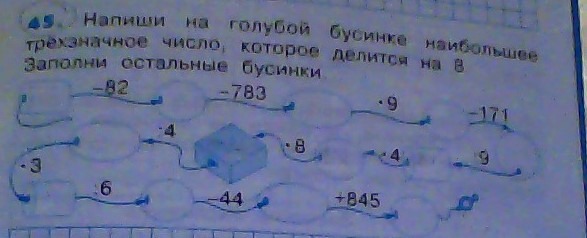 45. Напиши на голубой бусинке наибольшее
трёхзначное число, которое делится на 8
Заполни остальные бусинки
-82 -783 ·9 -171
:4 ·8 ·4 :9
·3
:6 -44 +845